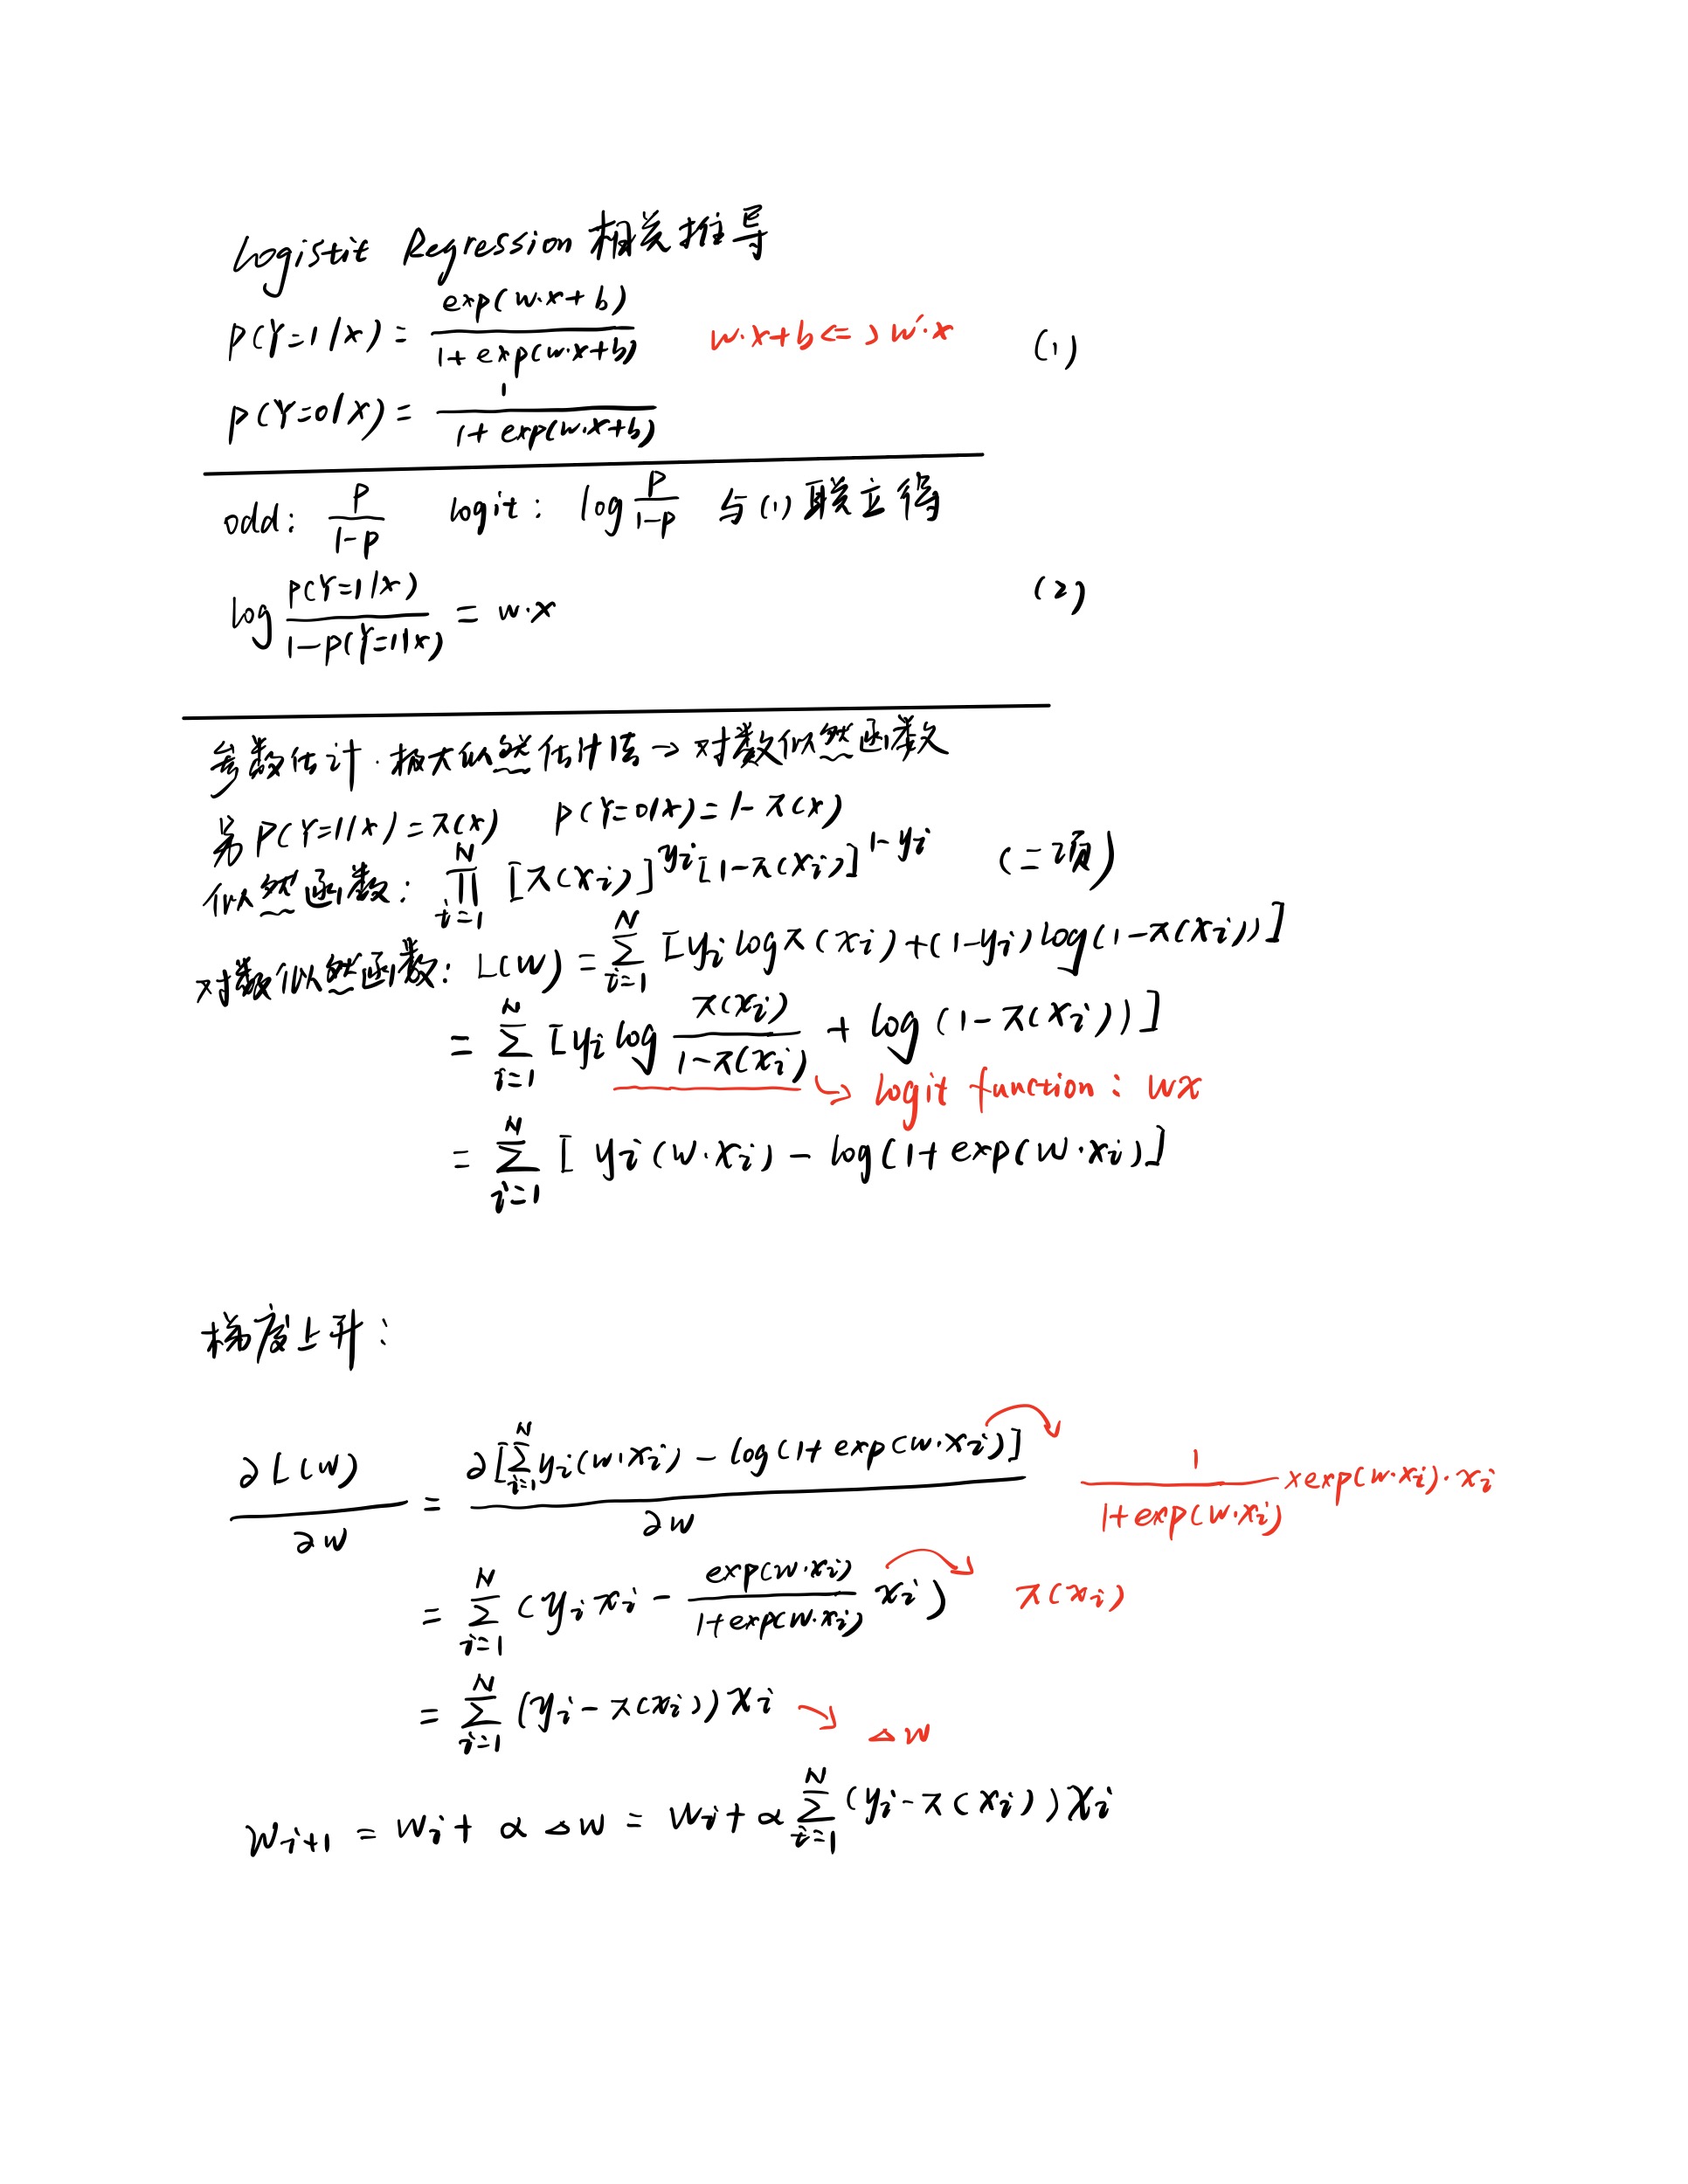 Logistit Regression 相关推导
P(Y=1/x) = exp(w·x+b) / 1+exp(w·x+b) w·x+b<=>w'·x (1)
P(Y=0/x) = 1 / 1+exp(w·x+b)
odd: P / 1-P logit: log P / 1-P 与(1)联立得
log P(Y=1/x) / 1-P(Y=1|x) = w·x (2)
参数估计·极大似然估计法→对数似然函数
另 P(Y=1/x)=π(x) P(Y=0/x)=1-π(x)
似然函数: ∏_{i=1}^{N} [π(xi)]^{yi} [1-π(xi)]^{1-yi} (二项)
对数似然函数: L(w) = ∑_{i=1}^{N} [yi log π(xi)+(1-yi)log(1-π(xi))]
= ∑_{i=1}^{N} [yi log π(xi) / 1-π(xi) + log(1-π(xi))]
↳ logit function: wx
= ∑_{i=1}^{N} [ yi(w·xi) - log(1+exp(w·xi)]
梯度上升:
∂L(w) / ∂w = ∂[∑_{i=1}^{N} yi(w·xi) - log(1+exp(w·xi)] / ∂w 1 / 1+exp(w·xi) ×exp(w·xi)·xi
= ∑_{i=1}^{N} (yi xi - exp(w·xi) / 1+exp(w·xi) xi) π(xi)
= ∑_{i=1}^{N} (yi-π(xi))xi → △w
wi+1 = wi+ α △w = wi+α ∑_{i=1}^{N} (yi-π(xi))xi